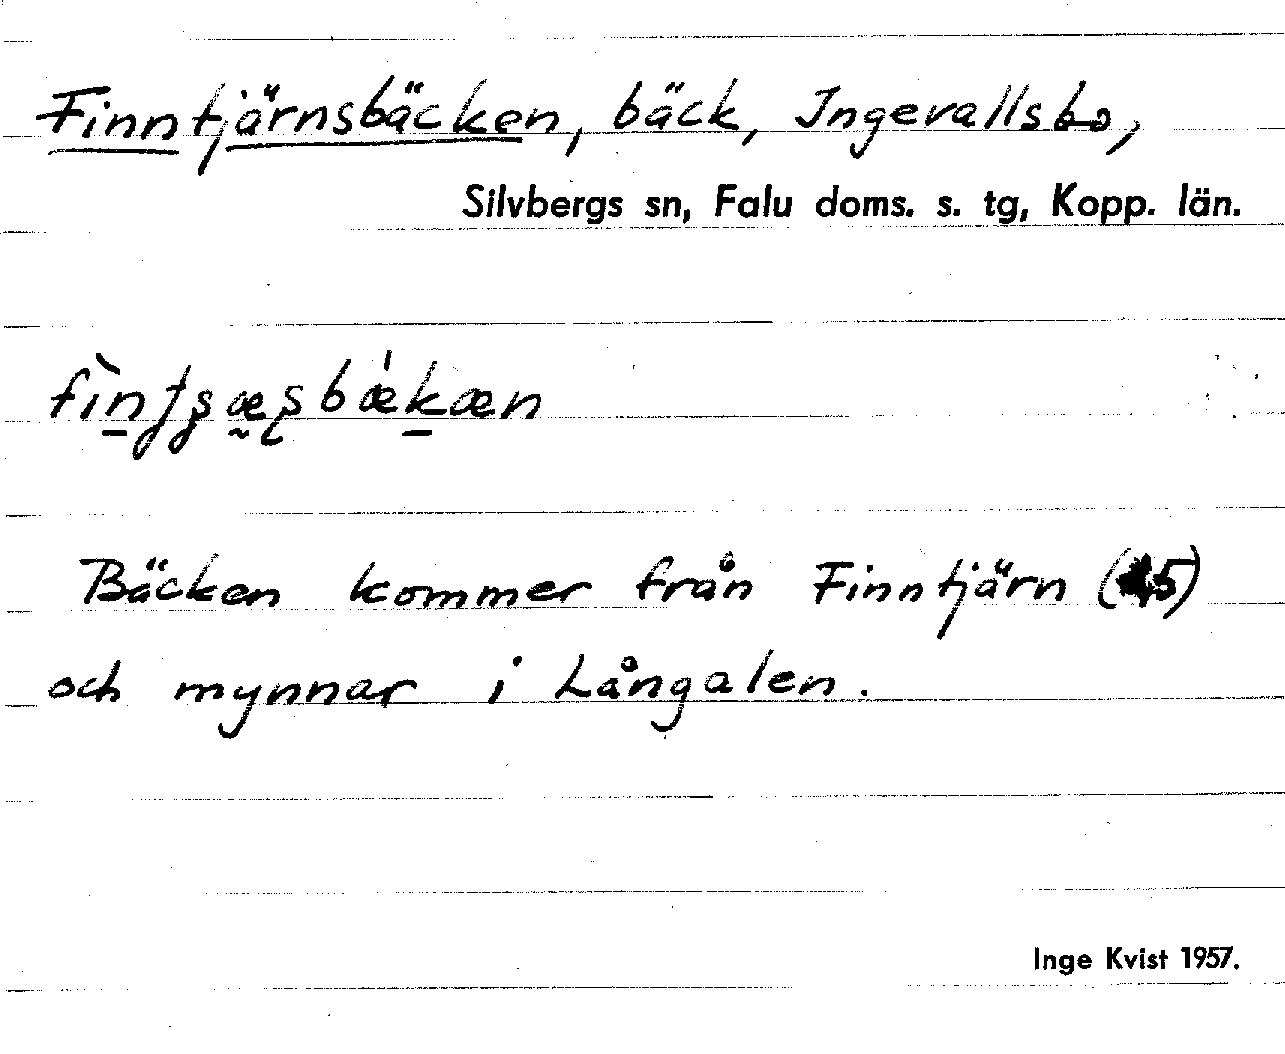 Finntjärnsbäcken, bäck, Ingevallsbo,
Silvbergs sn, Falu doms. s. tg, Kopp. län.
Bäcken kommer från Finntjärn (
och mynnar i Långalen.
Inge Kvist 1957.